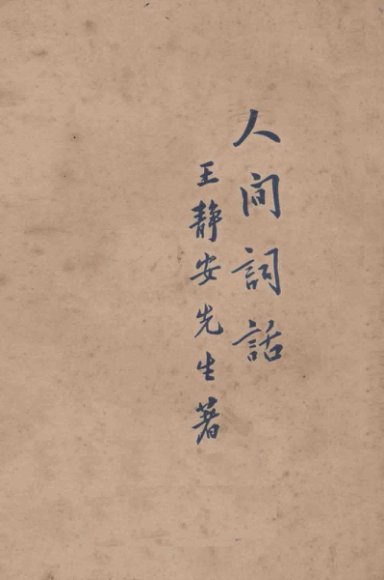 人间詞話
王静安先生著